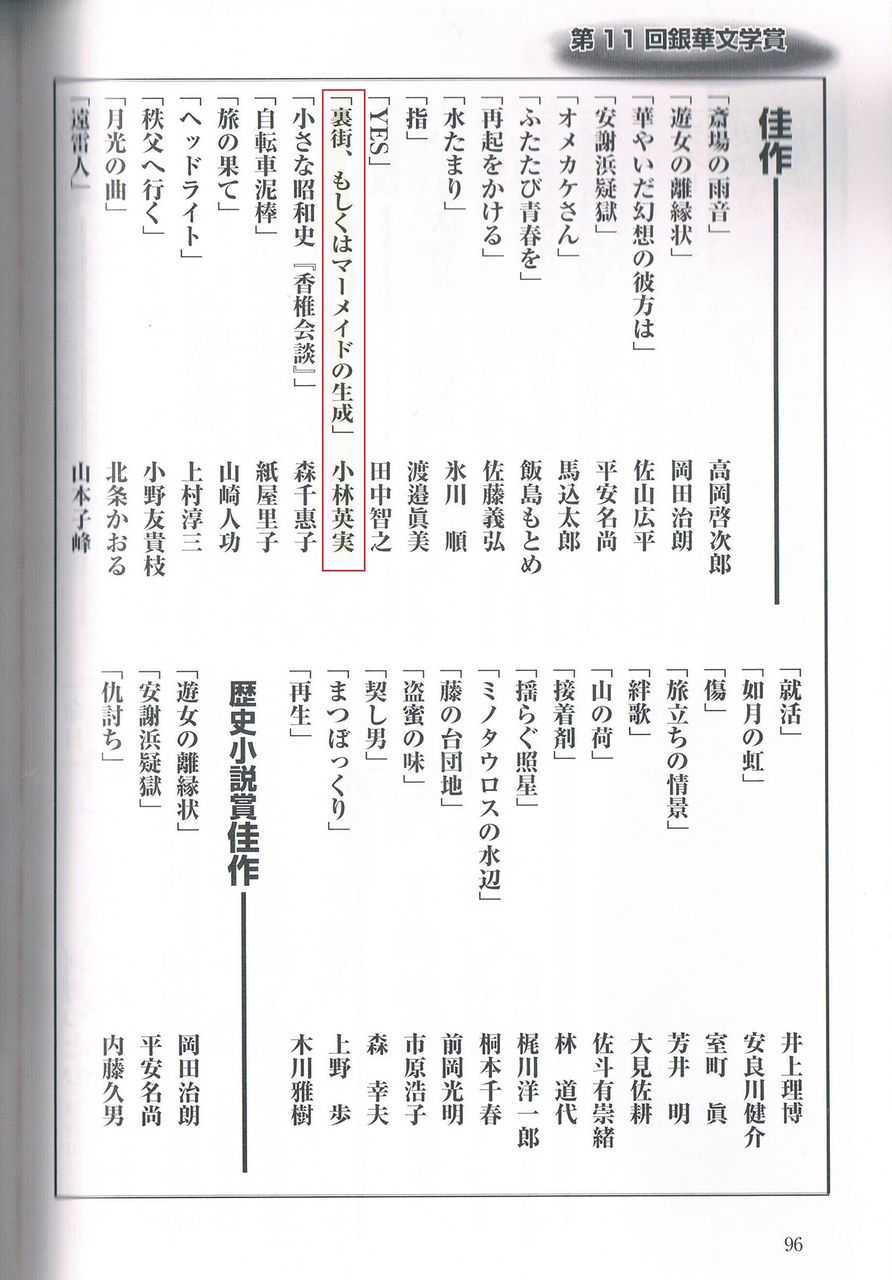 第11回銀華文学賞
佳作
「斎場の雨音」 高岡啓次郎
「遊女の離縁状」 岡田治朗
「華やいだ幻想の彼方は」 佐山広平
「安謝浜疑獄」 平安名尚
「オメカケさん」 馬込太郎
「ふたたび青春を」 飯島もとめ
「再起をかける」 佐藤義弘
「水たまり」 氷川 順
「指」 渡邉眞美
「YES」 田中智之
「裏街、もしくはマーメイドの生成」 小林英実
「小さな昭和史『香椎会談』」 森千惠子
「自転車泥棒」 紙屋里子
「旅の果て」 山崎人功
「ヘッドライト」 上村淳三
「秩父へ行く」 小野友貴枝
「月光の曲」 北条かおる
「遠雷人」 山本子峰
「就活」 井上理博
「如月の虹」 安良川健介
「傷」 室町 眞
「旅立ちの情景」 芳井 明
「絆歌」 大見佐耕
「山の荷」 佐斗有崇緒
「接着剤」 林 道代
「揺らぐ照星」 梶川洋一郎
「ミノタウロスの水辺」 桐本千春
「藤の台団地」 前岡光明
「盗蜜の味」 市原浩子
「契し男」 森 幸夫
「まつぼっくり」 上野 歩
「再生」 木川雅樹
歴史小説賞佳作
「遊女の離縁状」 岡田治朗
「安謝浜疑獄」 平安名尚
「仇討ち」 内藤久男
96